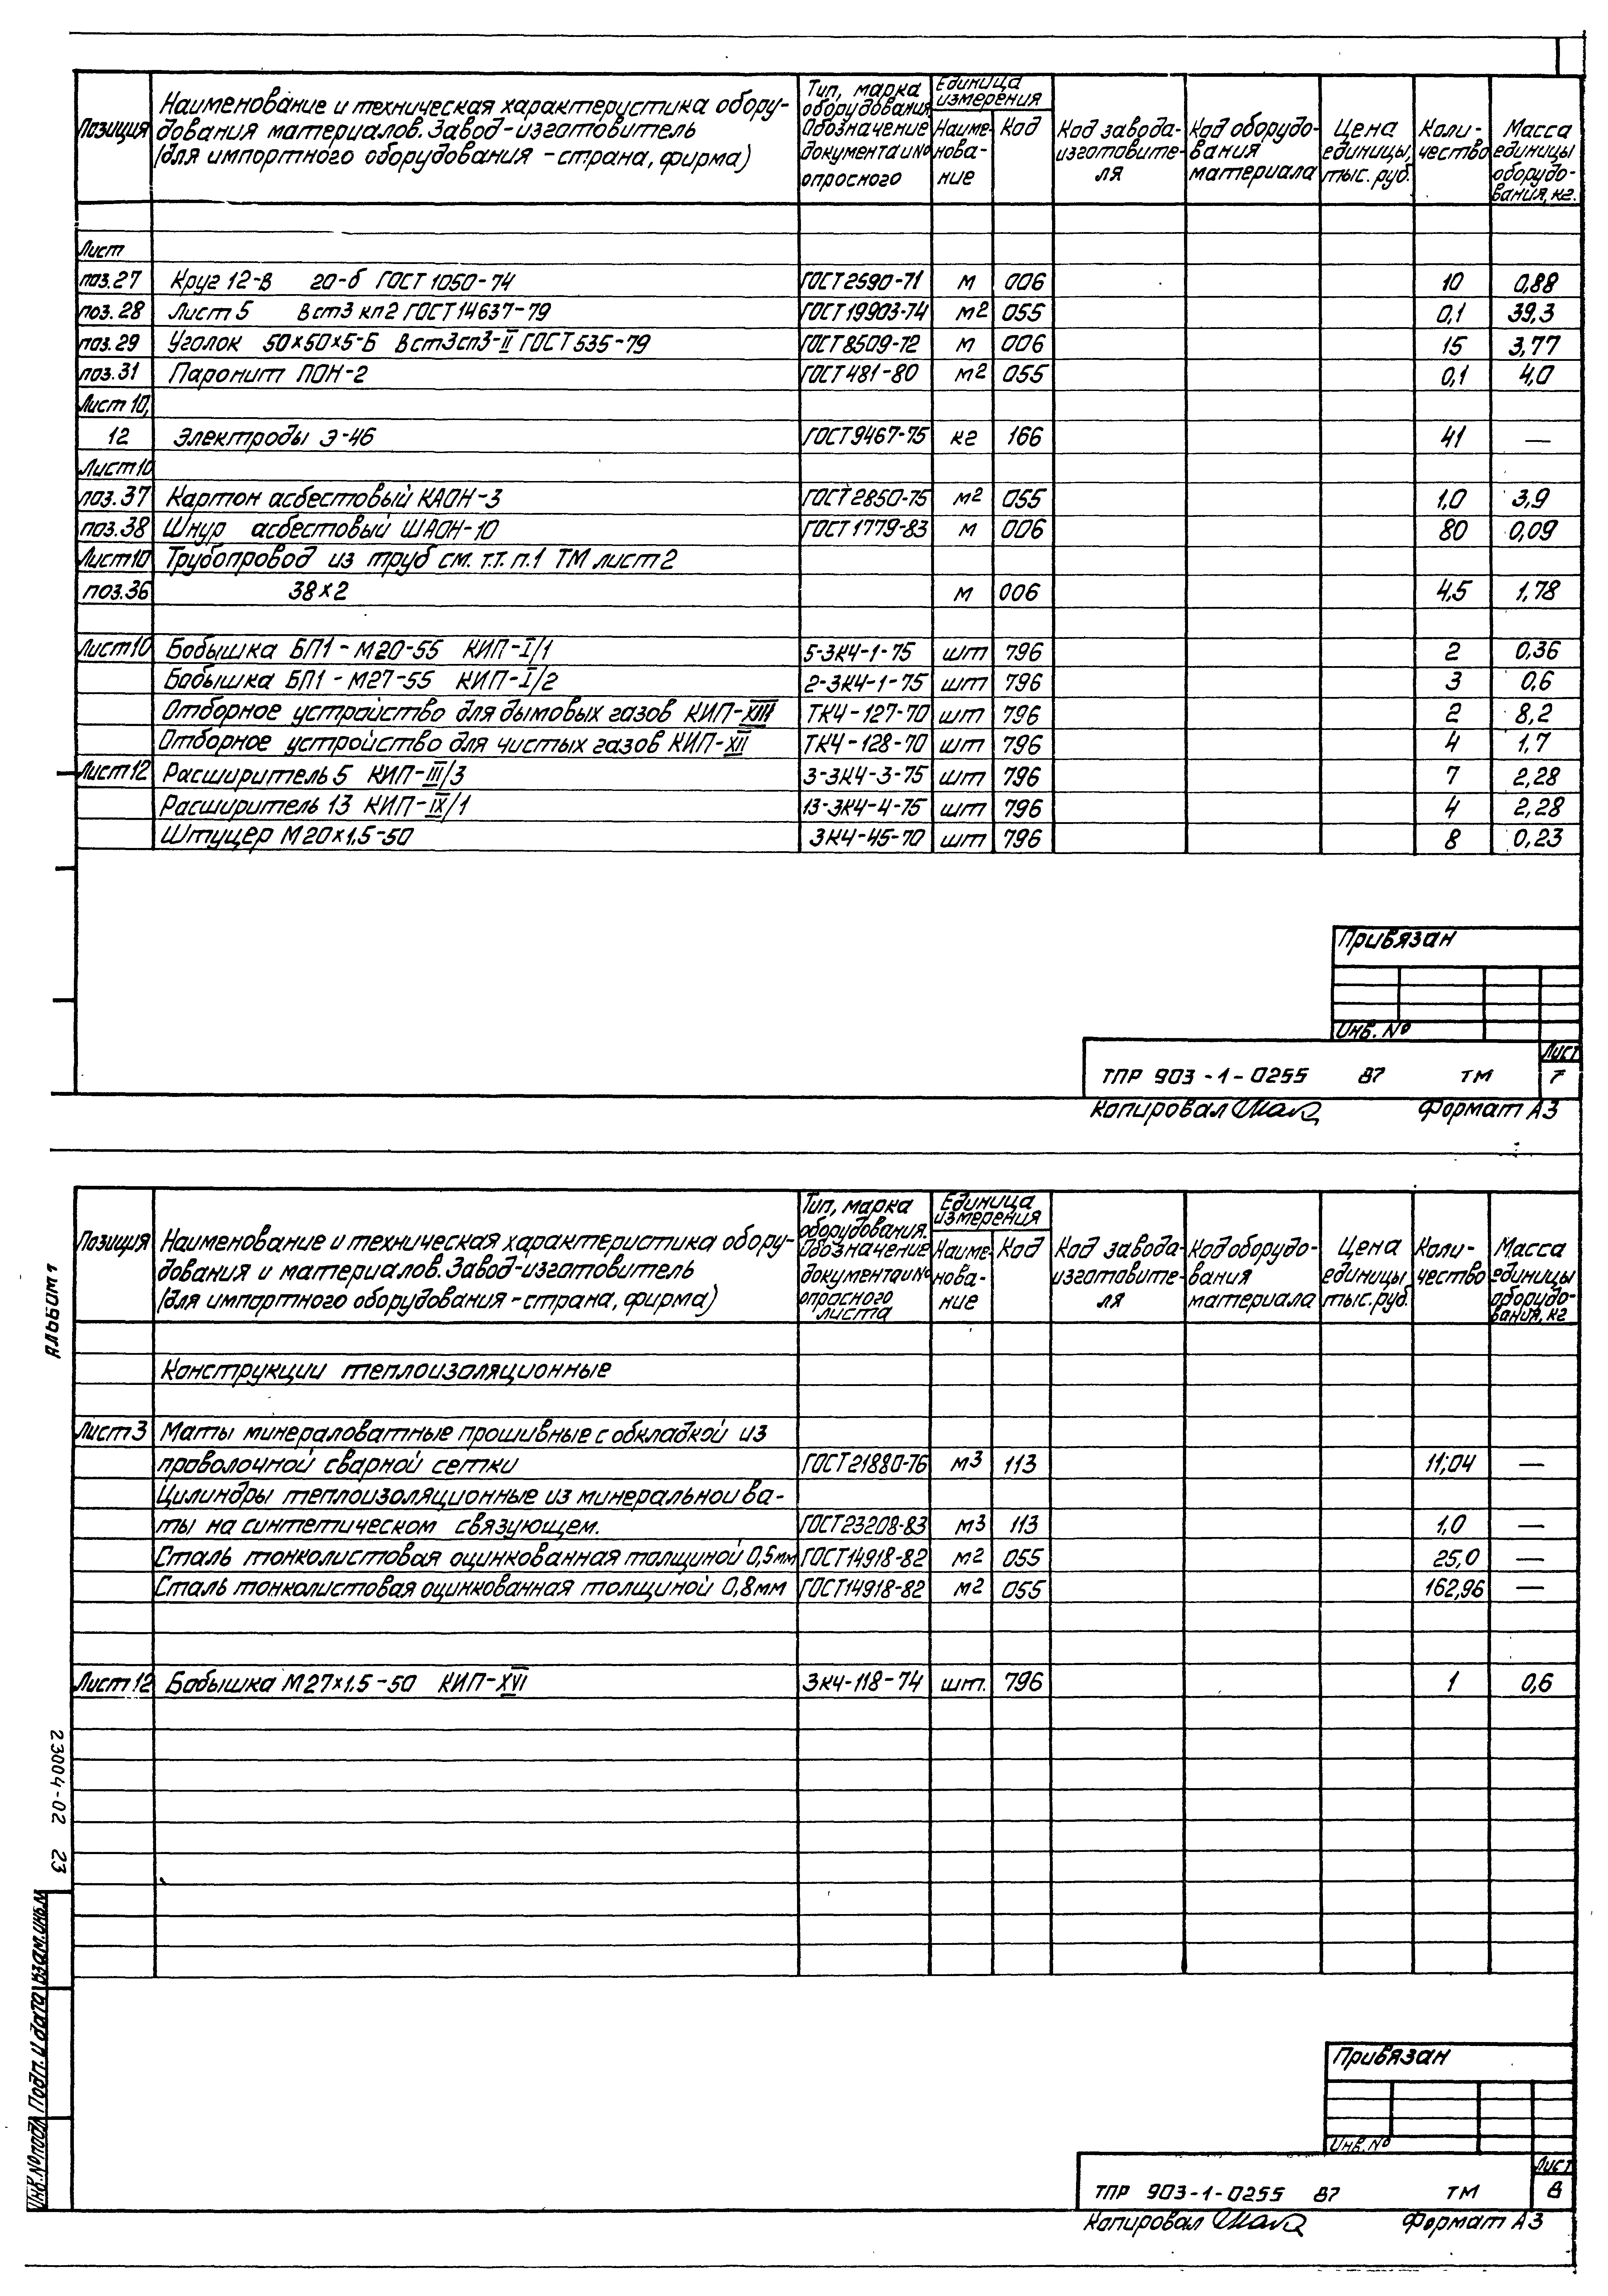 Позиция
Наименование и техническая характеристика обору-
дования материалов. Завод-изготовитель
(для импортного оборудования - страна, фирма)
Тип, марка
оборудования.
Обозначение
документа и №
опросного
Единица
измерения
Наиме-
нова-
ние
Код
Код завода-
изготовите-
ля
Код оборудо-
вания
материала
Цена
единицы,
тыс. руб.
Коли-
чество
Масса
единицы
оборудо-
вания, кг.
Лист
поз.27 Круг 12-В 20-б ГОСТ 1050-74 ГОСТ 2590-71 м 006 10 0,88
поз. 28 Лист 5 Вст3 кп2 ГОСТ 14637-79 ГОСТ 19903-74 м2 055 0,1 39,3
поз. 29 Уголок 50×50×5-Б Вст3сп3-II ГОСТ 535-79 ГОСТ 8509-72 м 006 15 3,77
поз.31 Паронит ПОН-2 ГОСТ 481-80 м2 055 0,1 4,0
Лист 10,
12 Электроды Э-46 ГОСТ 9467-75 кг 166 41 —
Лист 10
поз. 37 Картон асбестовый КАОН-3 ГОСТ 2850-75 м2 055 1,0 3,9
поз.38 Шнур асбестовый ШАОН-10 ГОСТ 1779-83 м 006 80 0,09
Лист 10 Трубопровод из труб см. т.т. п.1 ТМ лист 2
поз.36 38×2 м 006 4,5 1,78
Лист 10 Бобышка БП1-М20-55 КИП-I/1 5-ЗК4-1-75 шт 796 2 0,36
Бобышка БП1-М27-55 КИП-I/2 2-ЗК4-1-75 шт 796 3 0,6
Отборное устройство для дымовых газов КИП-XIII ТК4-127-70 шт 796 2 8,2
Отборное устройство для чистых газов КИП-XII ТК4-128-70 шт 796 4 1,7
Лист 12 Расширитель 5 КИП-III/3 3-ЗК4-3-75 шт 796 7 2,28
Расширитель 13 КИП-IX/1 13-ЗК4-4-75 шт 796 4 2,28
Штуцер М20×1,5-50 ЗК4-45-70 шт 796 8 0,23
Привязан
Инв. №
Лист
ТПР 903-1-0255 87 ТМ 7
Копировал Формат А3
Альбом 1
Позиция
Наименование и техническая характеристика обору-
дования и материалов. Завод-изготовитель
(для импортного оборудования - страна, фирма)
Тип, марка
оборудования.
Обозначение
документа и №
опросного
листа
Единица
измерения
Наиме-
нова-
ние
Код
Код завода-
изготовите-
ля
Код оборудо-
вания
материала
Цена
единицы
тыс. руб.
Коли-
чество
Масса
единицы
оборудо-
вания, кг
Конструкции теплоизоляционные
Лист 3 Маты минераловатные прошивные с обкладкой из
проволочной сварной сетки ГОСТ 21880-76 м3 113 11,04 —
Цилиндры теплоизоляционные из минеральной ва-
ты на синтетическом связующем. ГОСТ 23208-83 м3 113 1,0 —
Сталь тонколистовая оцинкованная толщиной 0,5мм ГОСТ 14918-82 м2 055 25,0 —
Сталь тонколистовая оцинкованная толщиной 0,8мм ГОСТ 14918-82 м2 055 162,96 —
Лист 12 Бобышка М27×1,5-50 КИП-XVI ЗК4-118-74 шт. 796 1 0,6
23004-02 23
Инв.№подл. Подп. и дата Взам.инв.№
Привязан
Инв. №
Лист
ТПР 903-1-0255 87 ТМ 8
Копировал Формат А3